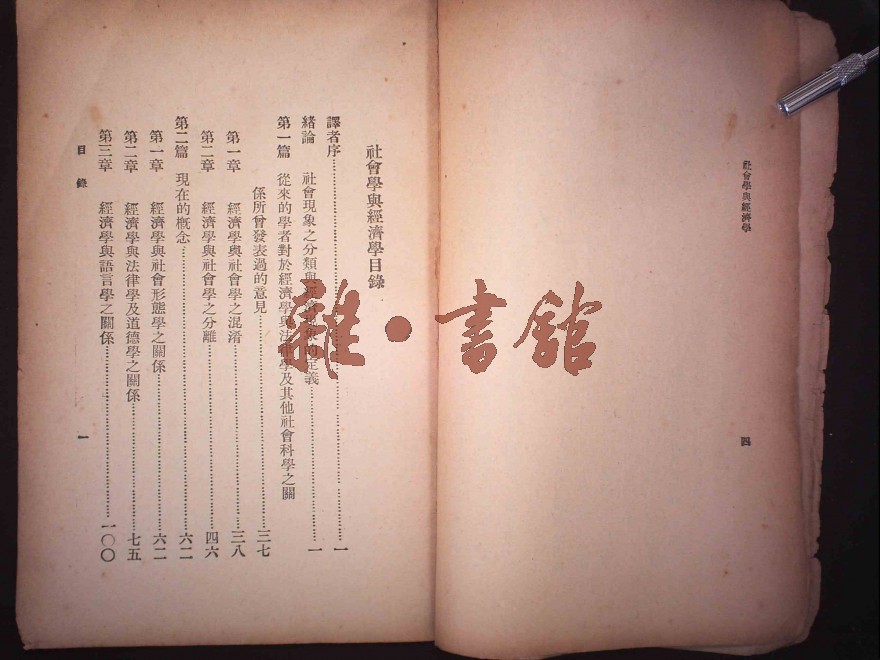 社會學與經濟學
四
社會學與經濟學目錄
譯者序……………………………………一
緒論 社會現象之分類與經濟現象的定義……………………一
第一篇 從來的學者對於經濟學與法律學及其他社會科學之關
係所曾發表過的意見……………………三七
第一章 經濟學與社會學之混淆……………………三八
第二章 經濟學與社會學之分離……………………四六
第二篇 現在的概念……………………六二
第一章 經濟學與社會形態學之關係……………………六二
第二章 經濟學與法律學及道德學之關係……………………七五
第三章 經濟學與語言學之關係……………………一〇〇
目錄
一
雜·書館